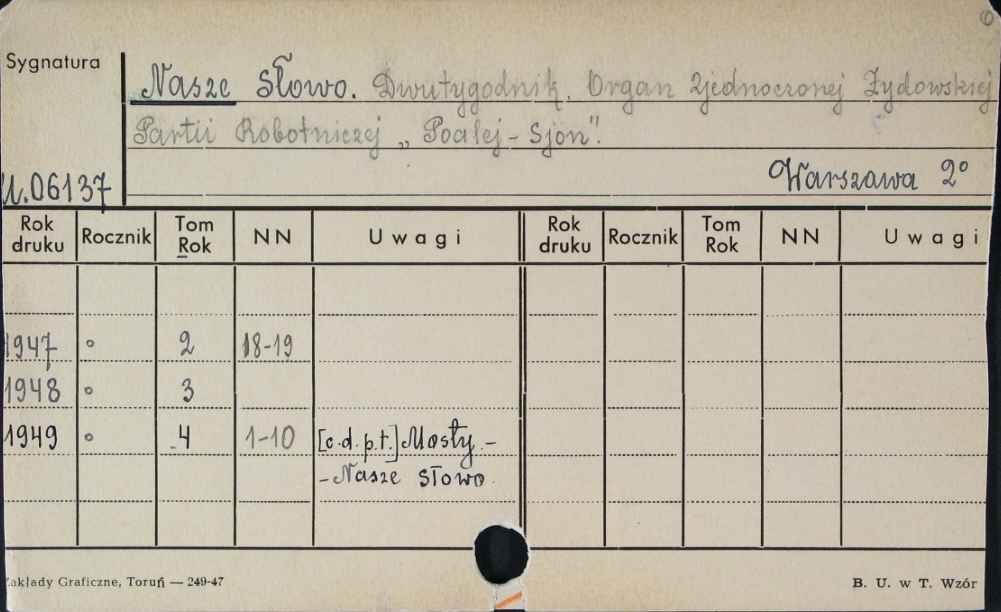 Sygnatura
Nasze Słowo. Dwutygodnik. Organ Zjednoczonej Żydowskiej
Partii Robotniczej „Poalej-Sjon".
06137
Warszawa 2°
Rok druku Rocznik Tom Rok NN Uwagi Rok druku Rocznik Tom Rok NN Uwagi
1947 ° 2 18-19
1948 ° 3
1949 ° 4 1-10 [c.d.p.t.] Mosty -
- Nasze Słowo
Zakłady Graficzne, Toruń — 249-47
B. U. w T. Wzór